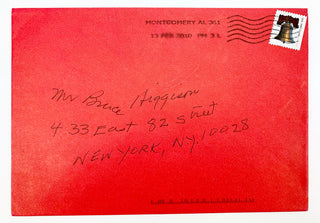 MONTGOMERY AL 361
13 FEB 2010 PM 3 L
Mr Bruce Higgison
433 East 82 Street
NEW YORK, NY. 10028